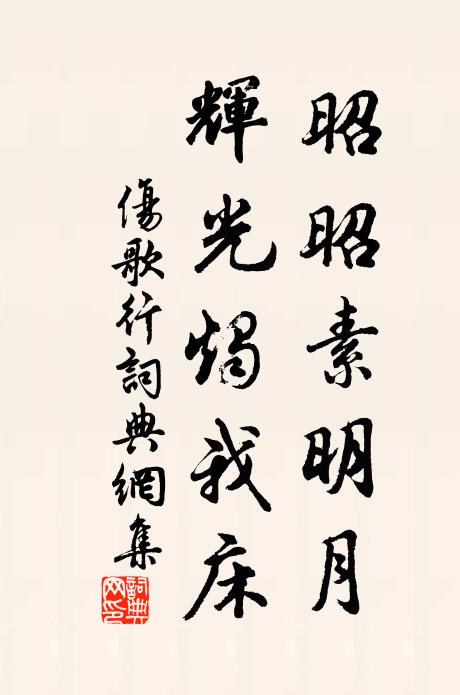 昭昭素明月
輝光燭我床
傷歌行詞典網集
詞典網印